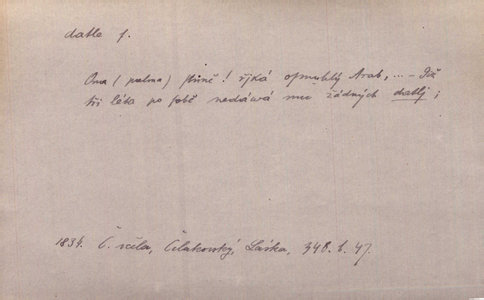 datle f.
Ona (palma) stůně! říká oprnchlý Arab, ... – Již
tři léta po sobě nedává mu žádných datlí;
1834. Č. včela, Čelakovský, Láska, 348. b. 47.